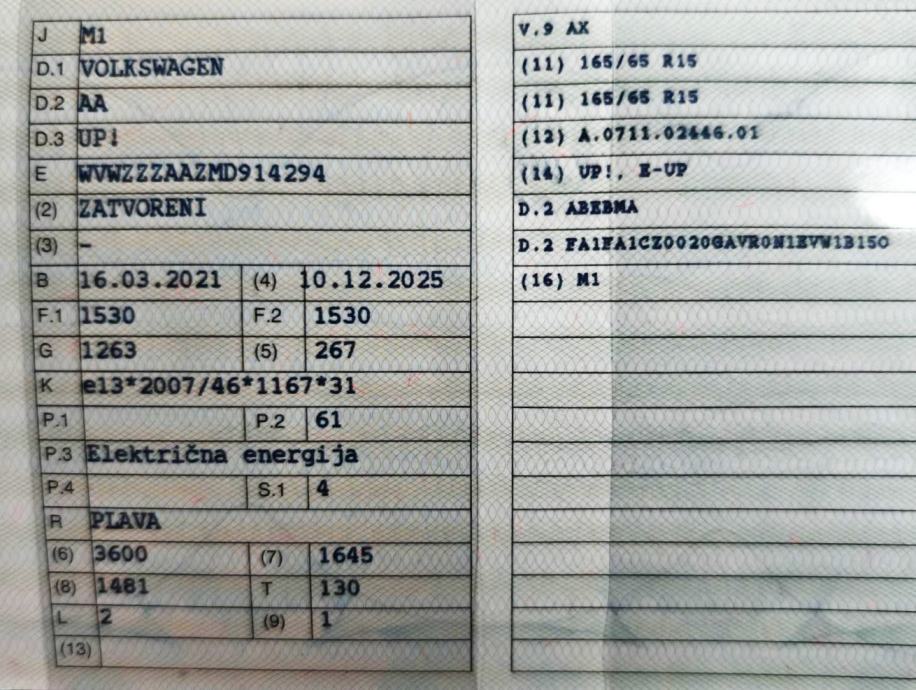 J M1
D.1 VOLKSWAGEN
D.2 AA
D.3 UP!
E WVWZZZAAZMD914294
(2) ZATVORENI
(3) –
B 16.03.2021 (4) 10.12.2025
F.1 1530 F.2 1530
G 1263 (5) 267
K e13*2007/46*1167*31
P.1 P.2 61
P.3 Električna energija
P.4 S.1 4
R PLAVA
(6) 3600 (7) 1645
(8) 1481 T 130
L 2 (9) 1
(13)
V.9 AX
(11) 165/65 R15
(11) 165/65 R15
(12) A.0711.02446.01
(14) UP!, E-UP
D.2 ABEBMA
D.2 FA1FA1CZ0020GAVR0N1EVW1B150
(16) M1